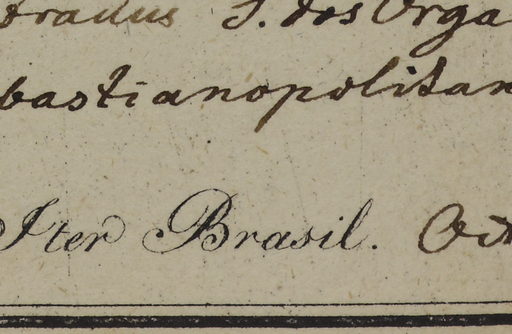 tradus S. dos Orga
bastianopolitan
Iter Brasil. Oct